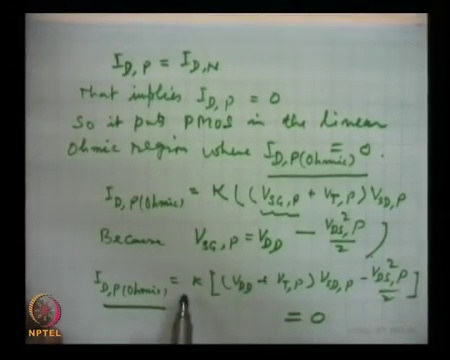 I_D,P = I_D,N
That implies I_D,P = 0
So it puts PMOS in the linear
Ohmic region where I_D,P(Ohmic) = 0.
I_D,P(Ohmic) = K ( (V_SG,P + V_T,P) V_SD,P
Because V_SG,P = V_DD - V_DS²,P / 2 )
I_D,P(Ohmic) = K [ (V_DD + V_T,P) V_SD,P - V_DS²,P / 2 ]
= 0
NPTEL